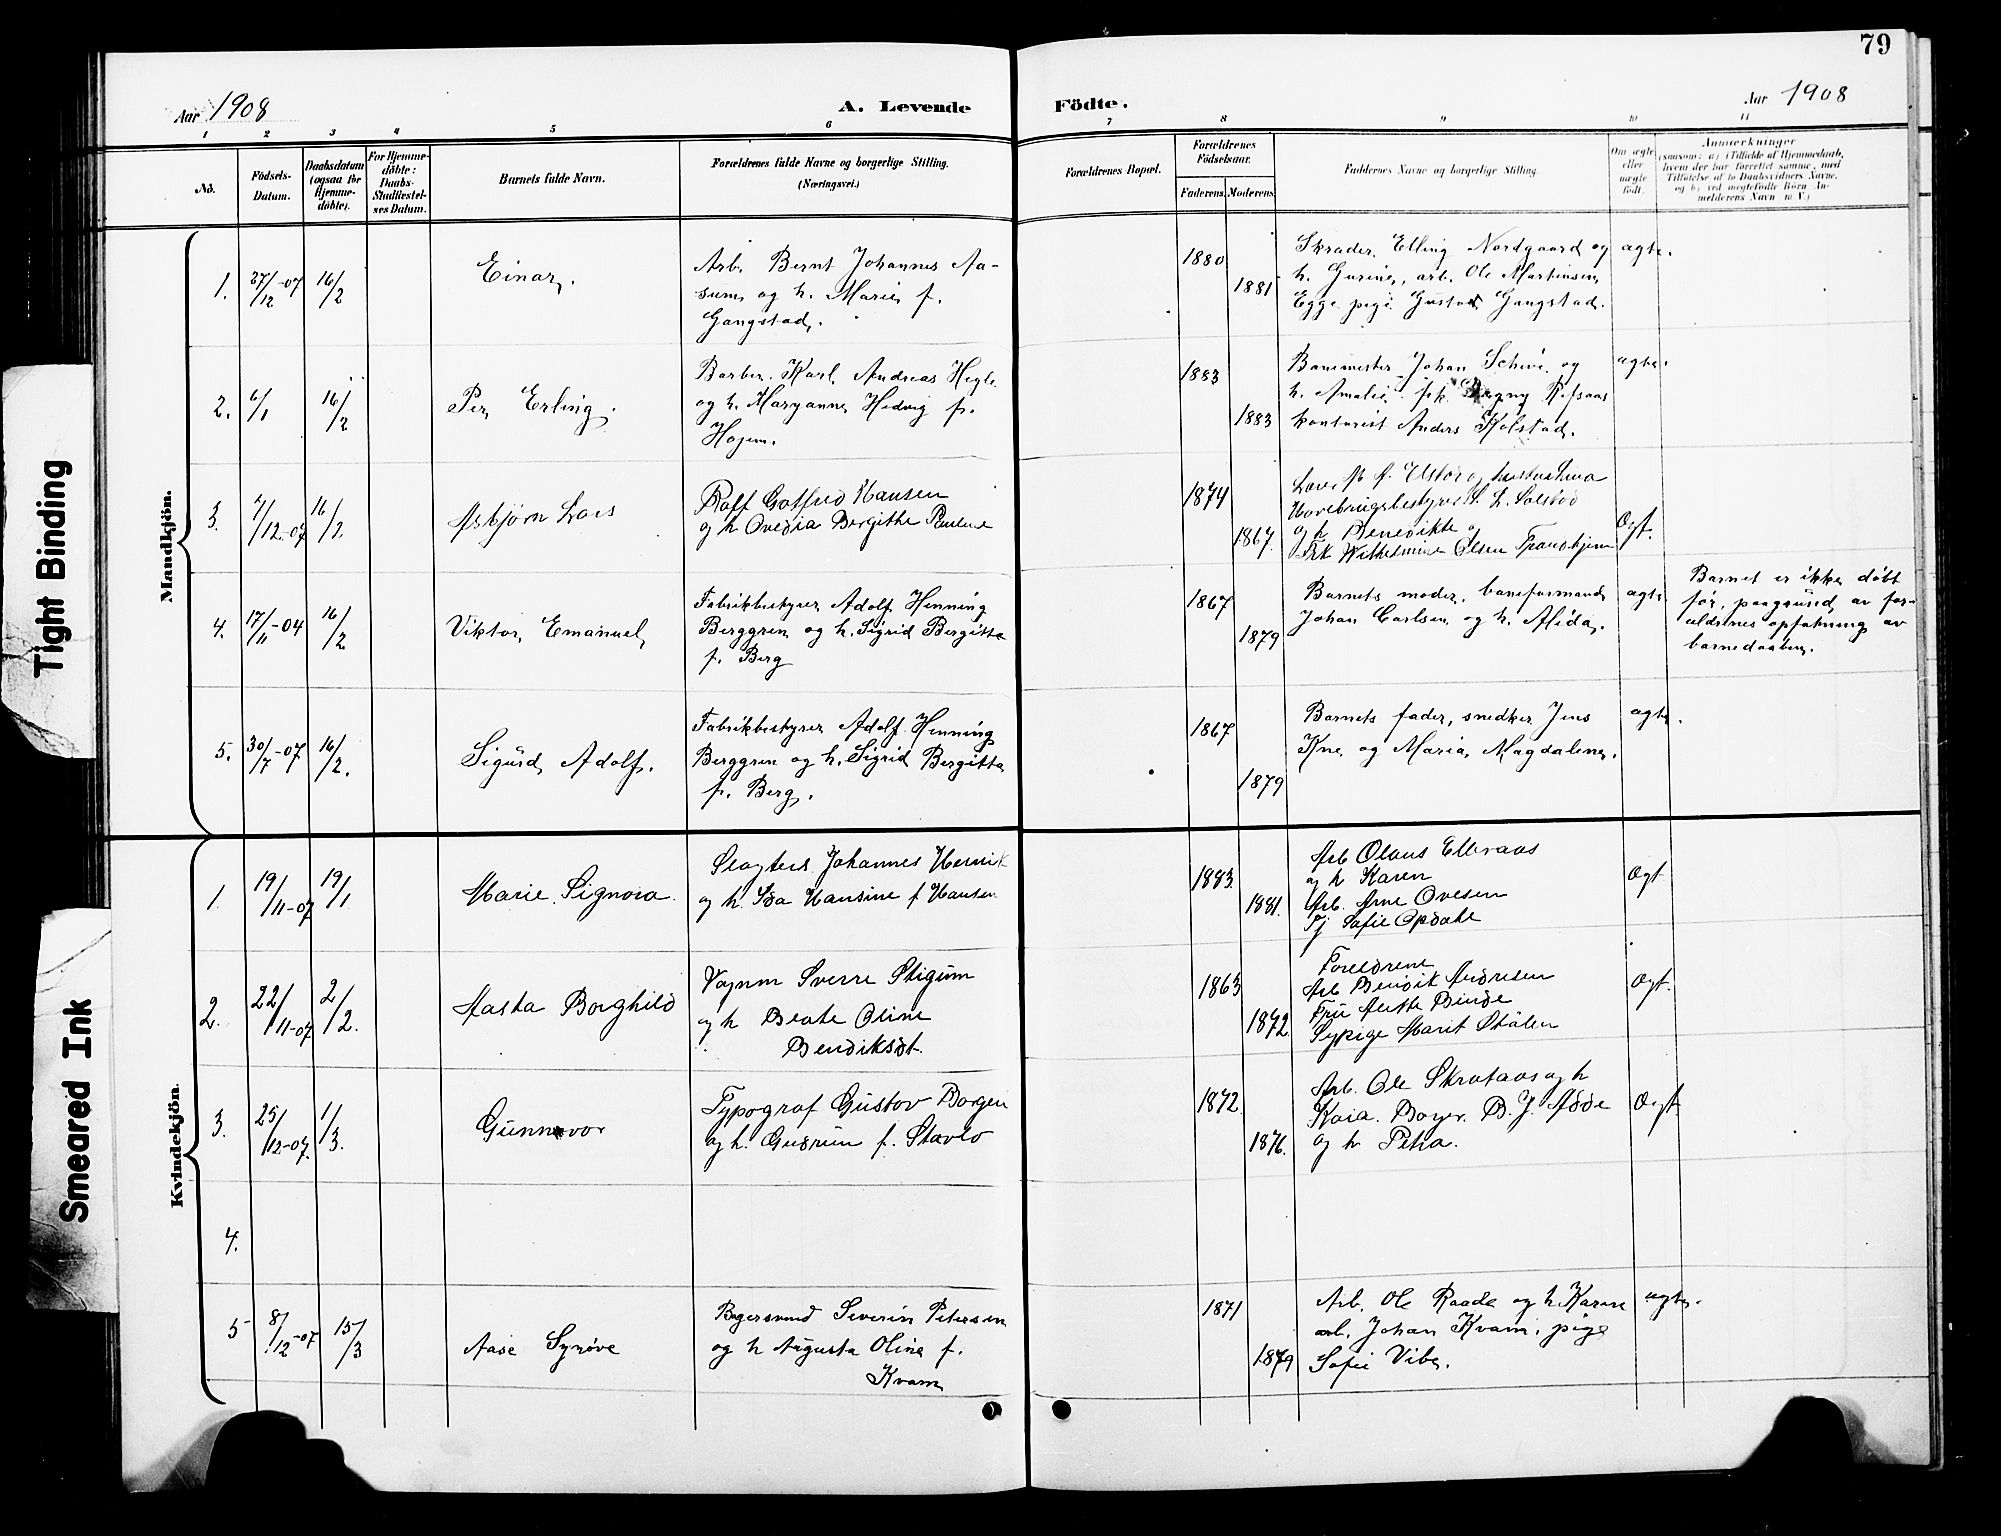 79
Aar 1908
A. Levende
Födte.
Aar 1908
1 2 3 4 5 6 7 8 9 10 11
No.
Födsels-
Datum.
Daabsdatum
(ogsaa for
Hjemme-
döbte).
For Hjemme-
döbte:
Daabs-
Stadfæstel-
ses Datum.
Barnets fulde Navn.
Forældrenes fulde Navne og borgerlige Stilling.
(Næringsvei.)
Forældrenes Bopæl.
Forældrenes
Födselsaar.
Faderens. Moderens.
Faddernes Navne og borgerlige Stilling.
Om ægte
eller
uægte
födt.
Anmærkninger
(saasom: a) Tilfælde af Hjemmedaab,
hvem der har forrettet samme, med
Tilföielse af to Daabsvidners Navne.
og b) ved uægtefödte Börn An-
melderens Navn m. V.)
Mandkjön.
1. 27/12-07 16/2
Einar.
Arb. Bernt Johannes Aa-
sum og h. Marie f.
Gangstad.
1880
1881
Skræder Elling Nordgaard og
h. Gurine, arb. Ole Martinsen
Egge pige Gangstad.
ægte.
2. 6/1 16/2
Per Erling.
Barber Karl Andreas
og h. Maryanne Hedvig f.
Hojem.
1883
1883
Banemester Johan Schive og
h. Amalie, frk. Rifsaas
kontorist Anders Kolstad.
ægte.
3. 7/12-07 16/2
Asbjörn Lars
Rolf Gotfred Hansen
og h Ovedia Bergithe Pauline
1874
1867.
og h Benedikte og
Frk Wilhelmine Olsen Trondhjem
Ægt.
4. 17/11-04 16/2
Viktor Emanuel
Fabrikbestyrer Adolf Henning
Berggren og h. Sigrid Bergitta
f. Berg
1867
1879
Barnets moder, baneformand
Johan Carlsen og h. Alida.
ægte
Barnet er ikke döbt
för, paagrund av for-
ældrenes opfatning av
barnedaaben.
5. 30/7-07 16/2.
Sigurd Adolf.
Fabrikbestyrer Adolf Henning
Berggren og h. Sigrid Bergitta
f. Berg.
1867
1879
Barnets fader, snedker Jens
Kne og Maria Magdalene.
ægte.
Kvindekjön.
1. 19/11-07 19/1
Marie Signora.
Slagter Johannes
og h. Ida Hansine f Hansen
1883.
1881.
Arb Olaus Elbraas
og h Karen
Arb. Arne Ovesen
Tj Sofie Opdahl
Ægt
2. 22/11-07 2/2.
Aasta Borghild
Vognm Sverre Stigum
og h Beate Oline
Bendiksdt.
1863
1872
Foreldrene
Arb Bendik Andresen
Fru Anette Binde
Sypige Marit Stölen
Ægt.
3. 25/12-07. 1/3.
Gunnvor
Typograf Gustav Borgen
og h. Gudrun f. Stavlo
1872
1876.
Arb. Ole Skrataas og h
Kaia. Bager B. J. Adde
og h Petra.
Ægt
4.
5 8/12-07 15/3
Aase Synöve
Severin Petersen
og h Augusta Oline f.
Kvam
1871
1879
Arb. Ole Raade og h Karen
arb. Johan Kvam, pige
Sofie Vibe.
ægte.
Tight Binding
Smeared Ink